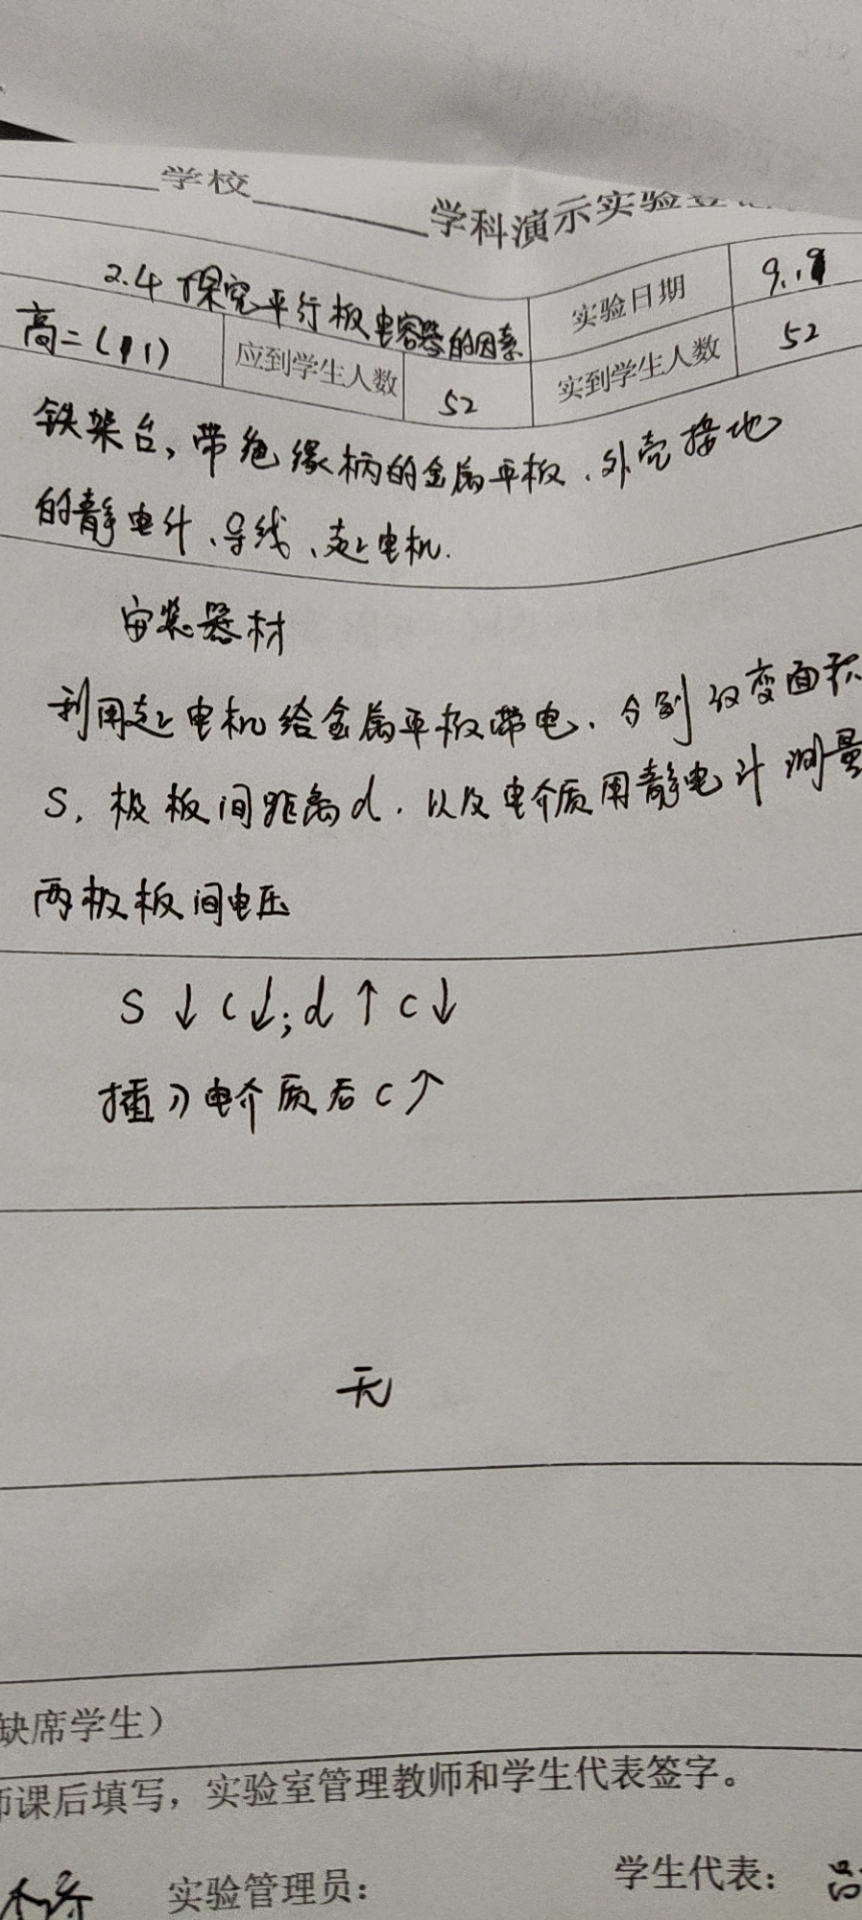 学校
学科演示实验登记
2.4 探究平行板电容器的因素
实验日期
9.9
高二(11)
应到学生人数
52
实到学生人数
52
铁架台,带绝缘柄的金属平板、外壳接地
的静电计、导线、起电机.
安装器材
利用起电机给金属平板带电、分别改变面积
S,极板间距离d.以及电介质用静电计测量
两极板间电压
S↓C↓;d↑C↓
插入电介质后C↑
无
缺席学生)
师课后填写,实验室管理教师和学生代表签字。
实验管理员:
学生代表: